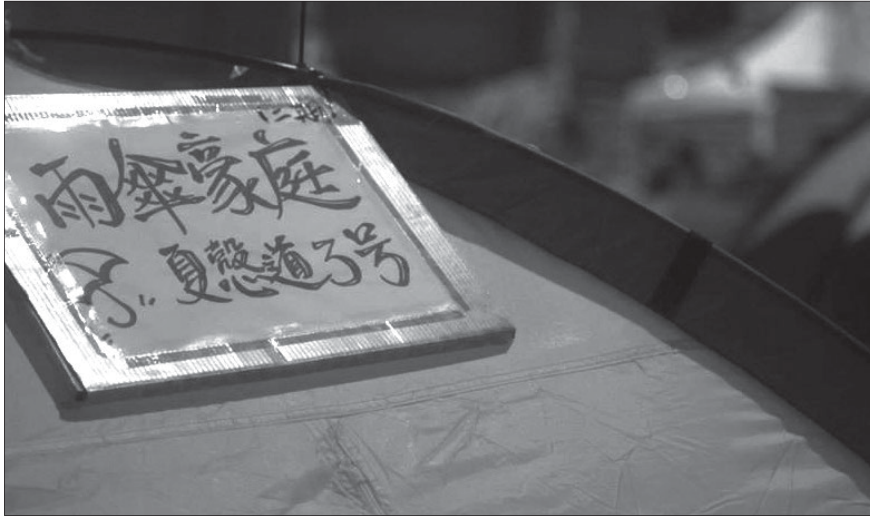 雨傘豪庭
夏慤道3号